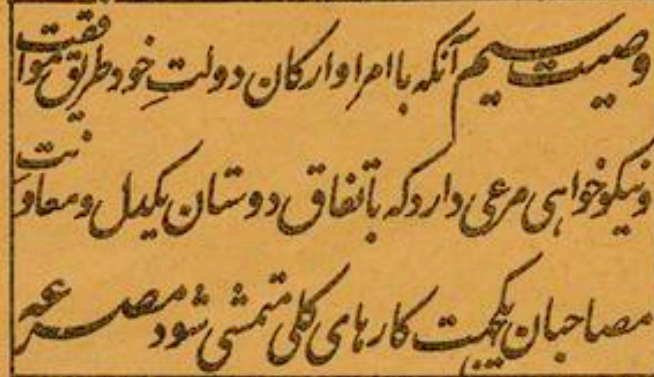 وصیت سیم آنکه باامرا وارکان دولتِ خود طریق موافقت
ونیکو خواهی مرعی داردکه باتفاق دوستان یکدل ومعاونتِ
مصاحبان یکجهت کارهای کلی متمشی شود مصرعه